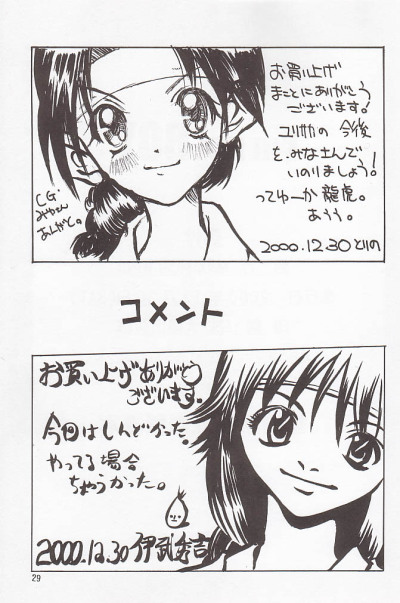 お買い上げ
まことにありがとう
ございます!
ユリサカの 今後
を、みなさんで
いのりましょう!
ってゆーか 龍虎。
あうう。
2000.12.30 とりの
CG.
みやさん
あんがと。
コメント
お買い上げありがとう
ございます。
今回はしんどかった。
やってる場合
ちゃうかった。
2000.12.30 伊武秀吉
29